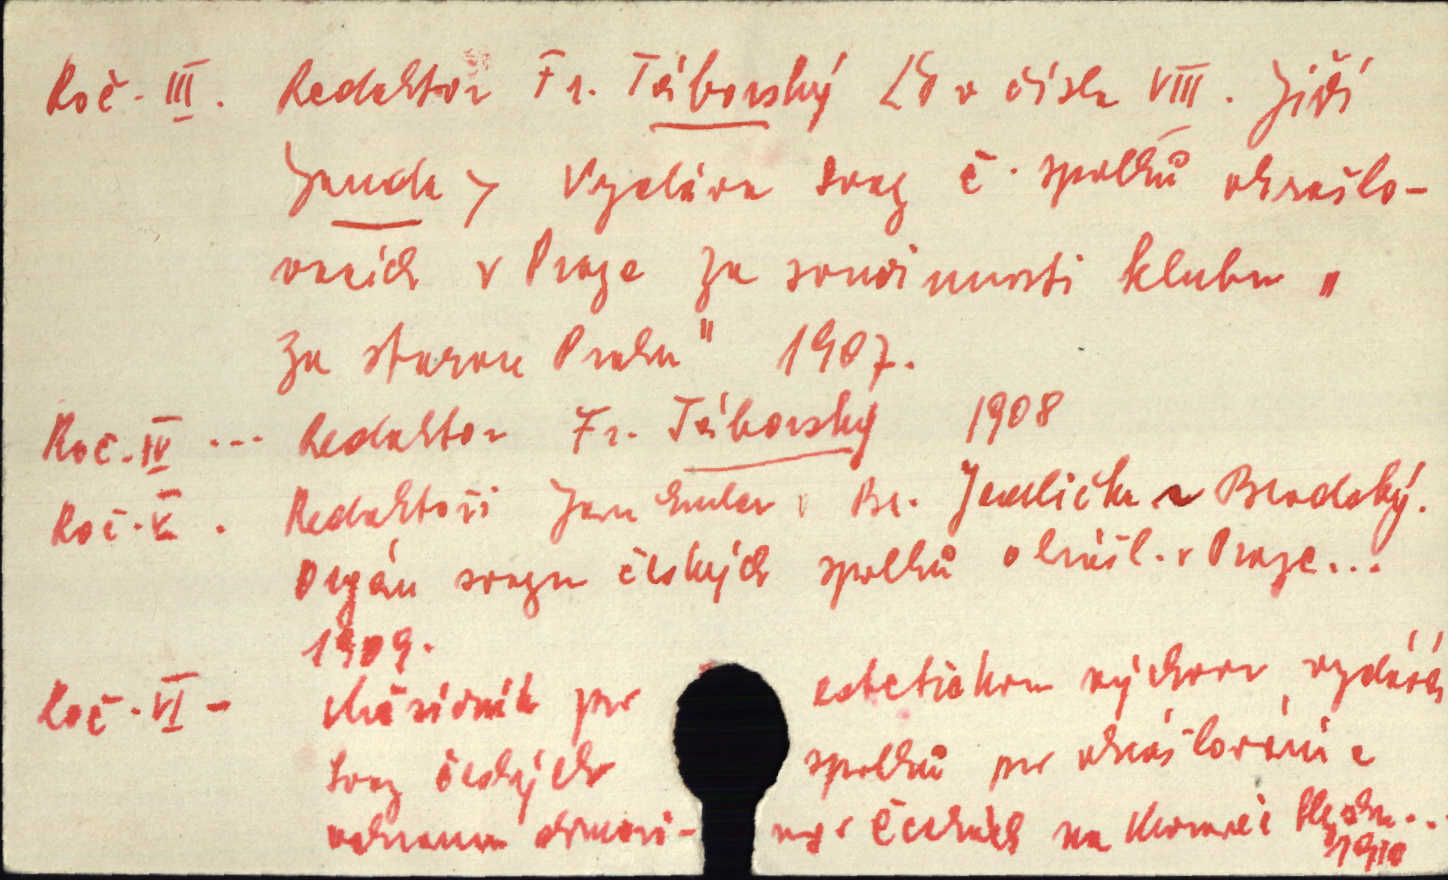 Roč. III. Redaktor Fr. Táborský <Od v čísla VIII. Jiří
Janda> Vydává svaz č. spolků okrašlo-
vacích v Praze za součinnosti klubu "
Za starou Prahu" 1907.
Roč. IV ... Redaktor Fr. Táborský 1908
Roč. V. Redaktoři Jan Emler, Br. Jedlička Brodský.
Orgán svazu českých spolků okrášl. v Praze...
1909.
Roč. VI - měsíčník pro estetickou výchovu, vydává
svaz českých spolků pro okrašlování a
ochranu domovi- ny v Čechách na Moravě
1910